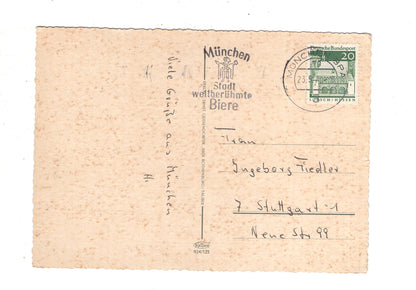 Viele Grüße aus München
H.
München
Stadt
weltberühmte
Biere
MÜNCHEN
Deutsche Bundespost
20
LORSCH/HESSEN
Frau
Ingeborg Fiedler
7 Stuttgart-1
Neue Str 99